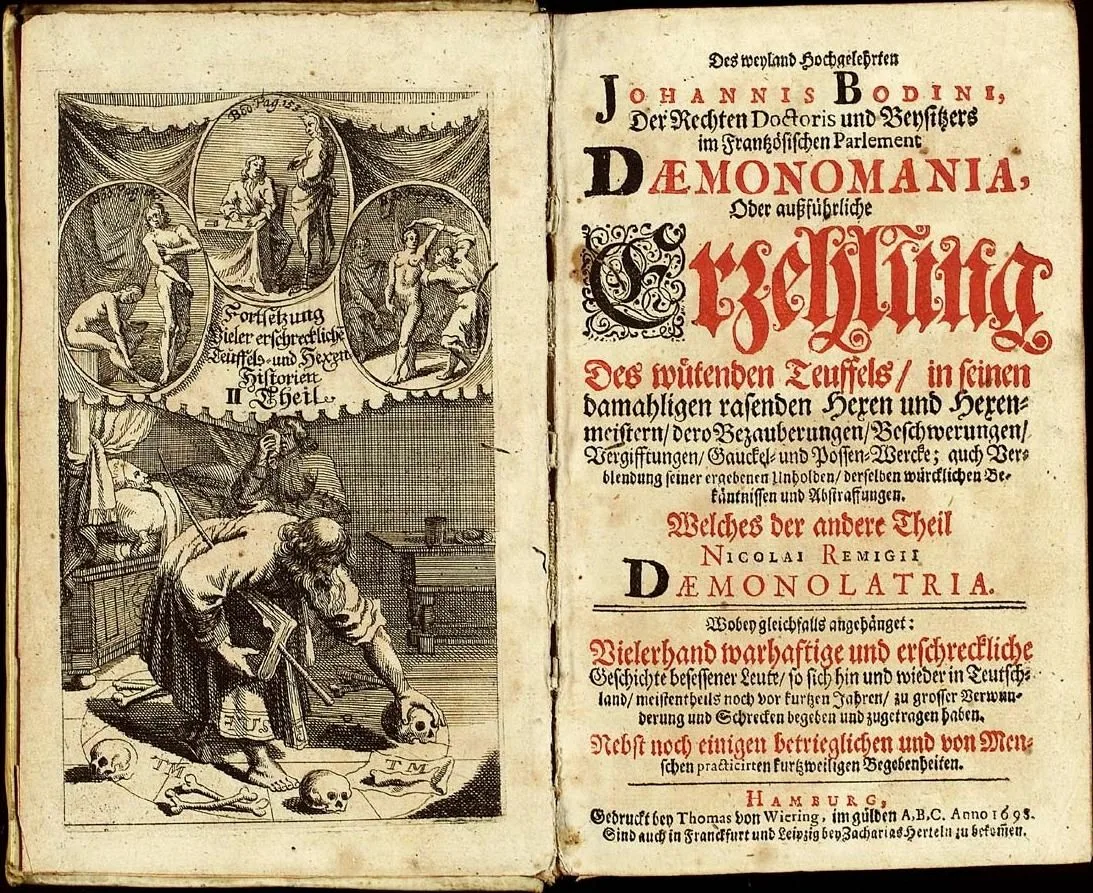 Bod. Pag. 153.
Fortsetzung
Vieler erschreckliche
Teuffels-und Hexen
Historien
II Theil.
TM
TM
Des weyland Hochgelehrten
JOHANNIS BODINI,
Der Rechten Doctoris und Beysitzers
im Frantzösischen Parlement
DÆMONOMANIA,
Oder außführliche
Erzehlung
Des wütenden Teuffels/ in seinen
damahligen rasenden Hexen und Hexen-
meistern/ dero Bezauberungen/ Beschwerungen/
Vergifftungen/ Gauckel- und Possen-Wercke; auch Ver-
blendung seiner ergebenen Unholden/ derselben würcklichen Be-
käntnissen und Abstraffungen.
Welches der andere Theil
NICOLAI REMIGII
DÆMONOLATRIA.
Wobey gleichfalls angehänget:
Vielerhand warhaftige und erschreckliche
Geschichte besessener Leute/ so sich hin und wieder in Teutsch-
land/ meistentheils noch vor kurtzen Jahren/ zu grosser Verwun-
derung und Schrecken begeben und zugetragen haben.
Nebst noch einigen betrieglichen und von Men-
schen practicirten kurtzweiligen Begebenheiten.
HAMBURG,
Gedruckt bey Thomas von Wiering, im gülden A,B,C. Anno 1698.
Sind auch in Franckfurt und Leipzig bey Zacharias Herteln zu bekom̄en.